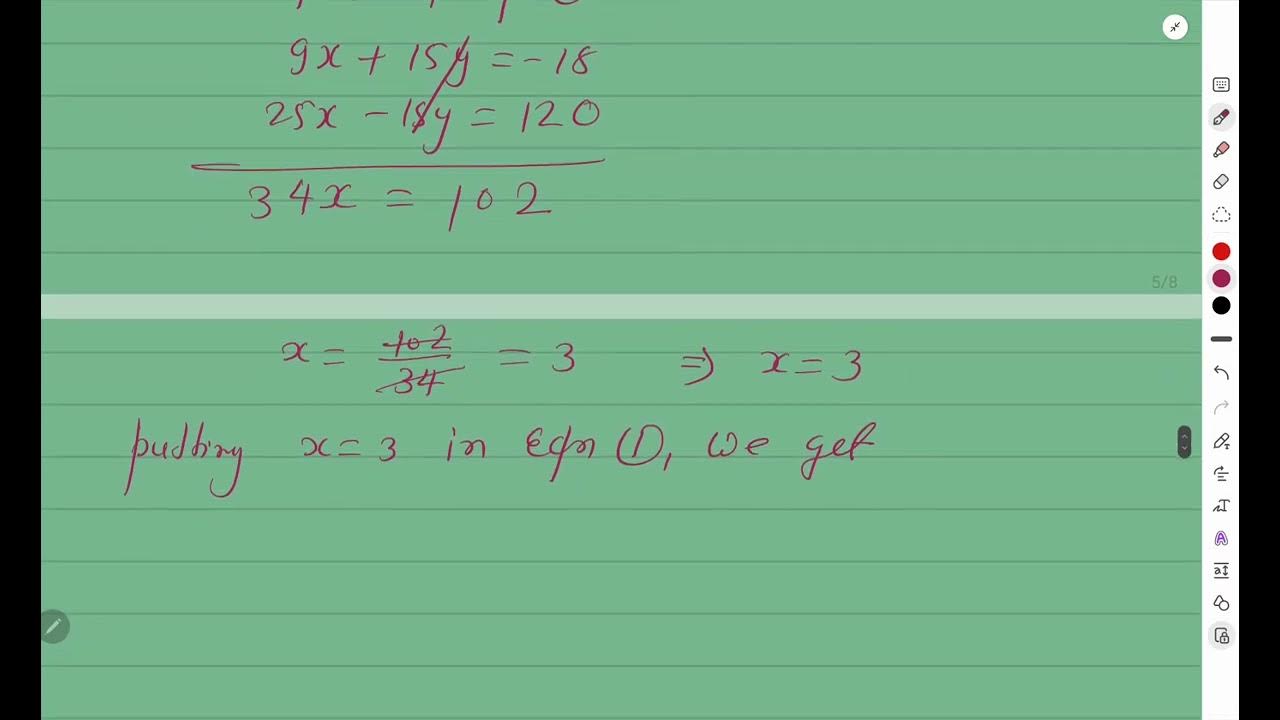 9x + 15y = -18
25x - 15y = 120
34x = 102
5/8
x = 102/34 = 3 ⇒ x = 3
putting x = 3 in Eqn (1), we get